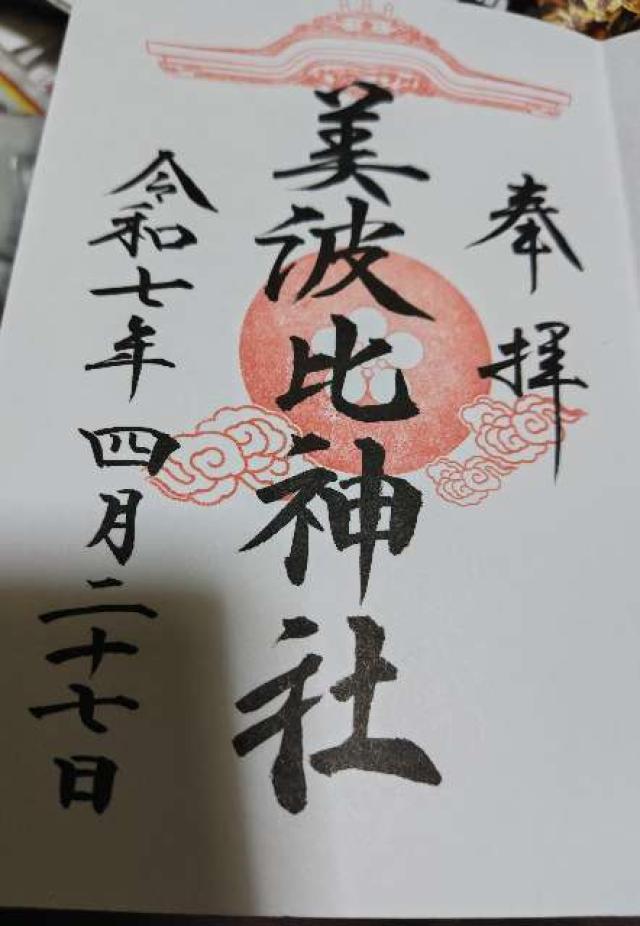 奉拝
美波比神社
令和七年四月二十七日